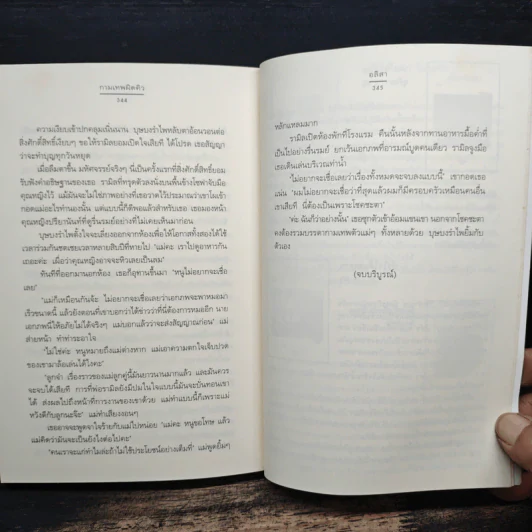 กามเทพผิดคิว
244
ความเงียบเข้าปกคลุมเนิ่นนาน บุษบงรำไพหลับตาอ้อนวอนต่อ
สิ่งศักดิ์สิทธิ์เงียบๆ ขอให้รามิลเปิดใจเสียที ได้โปรด เธอสัญญา
ว่าจะทำบุญทุกวันหยุด
เมื่อลืมตาขึ้น มหัศจรรย์จริงๆ นี่เป็นครั้งแรกที่สิ่งศักดิ์สิทธิ์ยอม
รับฟังคำอธิษฐานของเธอ รามิลที่ทรุดตัวลงนั่งบนพื้นข้างโซฟาจับมือ
คุณหญิงไว้ แม้มันจะไม่ใช่ภาพอย่างที่เธอวาดไว้ประมาณว่าเขาโผเข้า
กอดแม่อะไรทำนองนั้น แต่แบบนี้ก็ดีพอแล้วสำหรับเธอ เธอมองหน้า
คุณหญิงปริยานันท์ที่ดูรื่นรมย์อย่างที่ไม่เคยเห็นมาก่อน
บุษบงรำไพตั้งใจจะเลี่ยงออกจากห้องเพื่อให้โอกาสทั้งสองได้ใช้
เวลาร่วมกันชดเชยเวลาหลายสิบปีที่หายไป "แม่คะ เราไปดูอาหารกัน
เถอะค่ะ เผื่อว่าคุณหญิงอาจจะหิวเลยเป็นลม"
ทันทีที่ออกมานอกห้อง เธอก็อุทานขึ้นมา "หนูไม่อยากจะเชื่อ
เลย"
"แม่ก็เหมือนกันจ้ะ ไม่อยากจะเชื่อเลยว่าเอกภพจะพาหมอมา
เร็วขนาดนี้ แล้วยังตอนที่เขาบอกว่าได้ข่าวว่าที่นี่ต้องการหมออีก นาย
เอกภพนี่ให้อภัยไม่ได้จริงๆ แม่บอกแล้วว่าจะส่งสัญญาณก่อน" แม่
ส่ายหน้า ทำท่าระอาใจ
"ไม่ใช่ค่ะ หนูหมายถึงแม่ต่างหาก แม่เอาความตกใจเจ็บปวด
ของเขามาล้อเล่นได้ไงคะ"
"ลูกจ๋า เรื่องราวของแม่ลูกคู่นี้มันยาวนานมากแล้ว และมันควร
จะจบได้เสียที การที่พ่อรามิลยังมีปมในใจแบบนี้มันจะบั่นทอนเขา
ได้ ส่งผลไปถึงหน้าที่การงานของเขาด้วย แม่ทำแบบนี้ก็เพราะแม่
หวังดีกับลูกนะจ๊ะ" แม่ทำเสียงงอนๆ
เธออาจจะพูดจาใจร้ายกับแม่ไปหน่อย "แม่คะ หนูขอโทษ แล้ว
แม่คิดว่ามันจะเป็นยังไงต่อไปคะ"
"คนเราจะแก่ทำไมล่ะถ้าไม่ใช้ประโยชน์อย่างเต็มที่" แม่พูดยิ้มๆ
อลิสา
245
หลักแหลมมาก
รามิลเปิดห้องพักที่โรงแรม คืนนั้นหลังจากทานอาหารมื้อค่ำที่
เป็นไปอย่างรื่นรมย์ ยกเว้นเอกภพที่อารมณ์บูดคนเดียว รามิลจูงมือ
เธอเดินเล่นบริเวณท่าน้ำ
"ไม่อยากจะเชื่อเลยว่าเรื่องทั้งหมดจะจบลงแบบนี้" เขากอดเธอ
แน่น "ผมไม่อยากจะเชื่อว่าที่สุดแล้วผมก็มีครอบครัวเหมือนคนอื่น
เขาเสียที นี่ต้องเป็นเพราะโชคชะตา"
"ค่ะ ฉันก็ว่าอย่างนั้น" เธอซุกตัวเข้าอ้อมแขนเขา นอกจากโชคชะตา
คงต้องรวมบรรดากามเทพตัวแม่ๆ ทั้งหลายด้วย บุษบงรำไพยิ้มกับ
ตัวเอง
(จบบริบูรณ์)